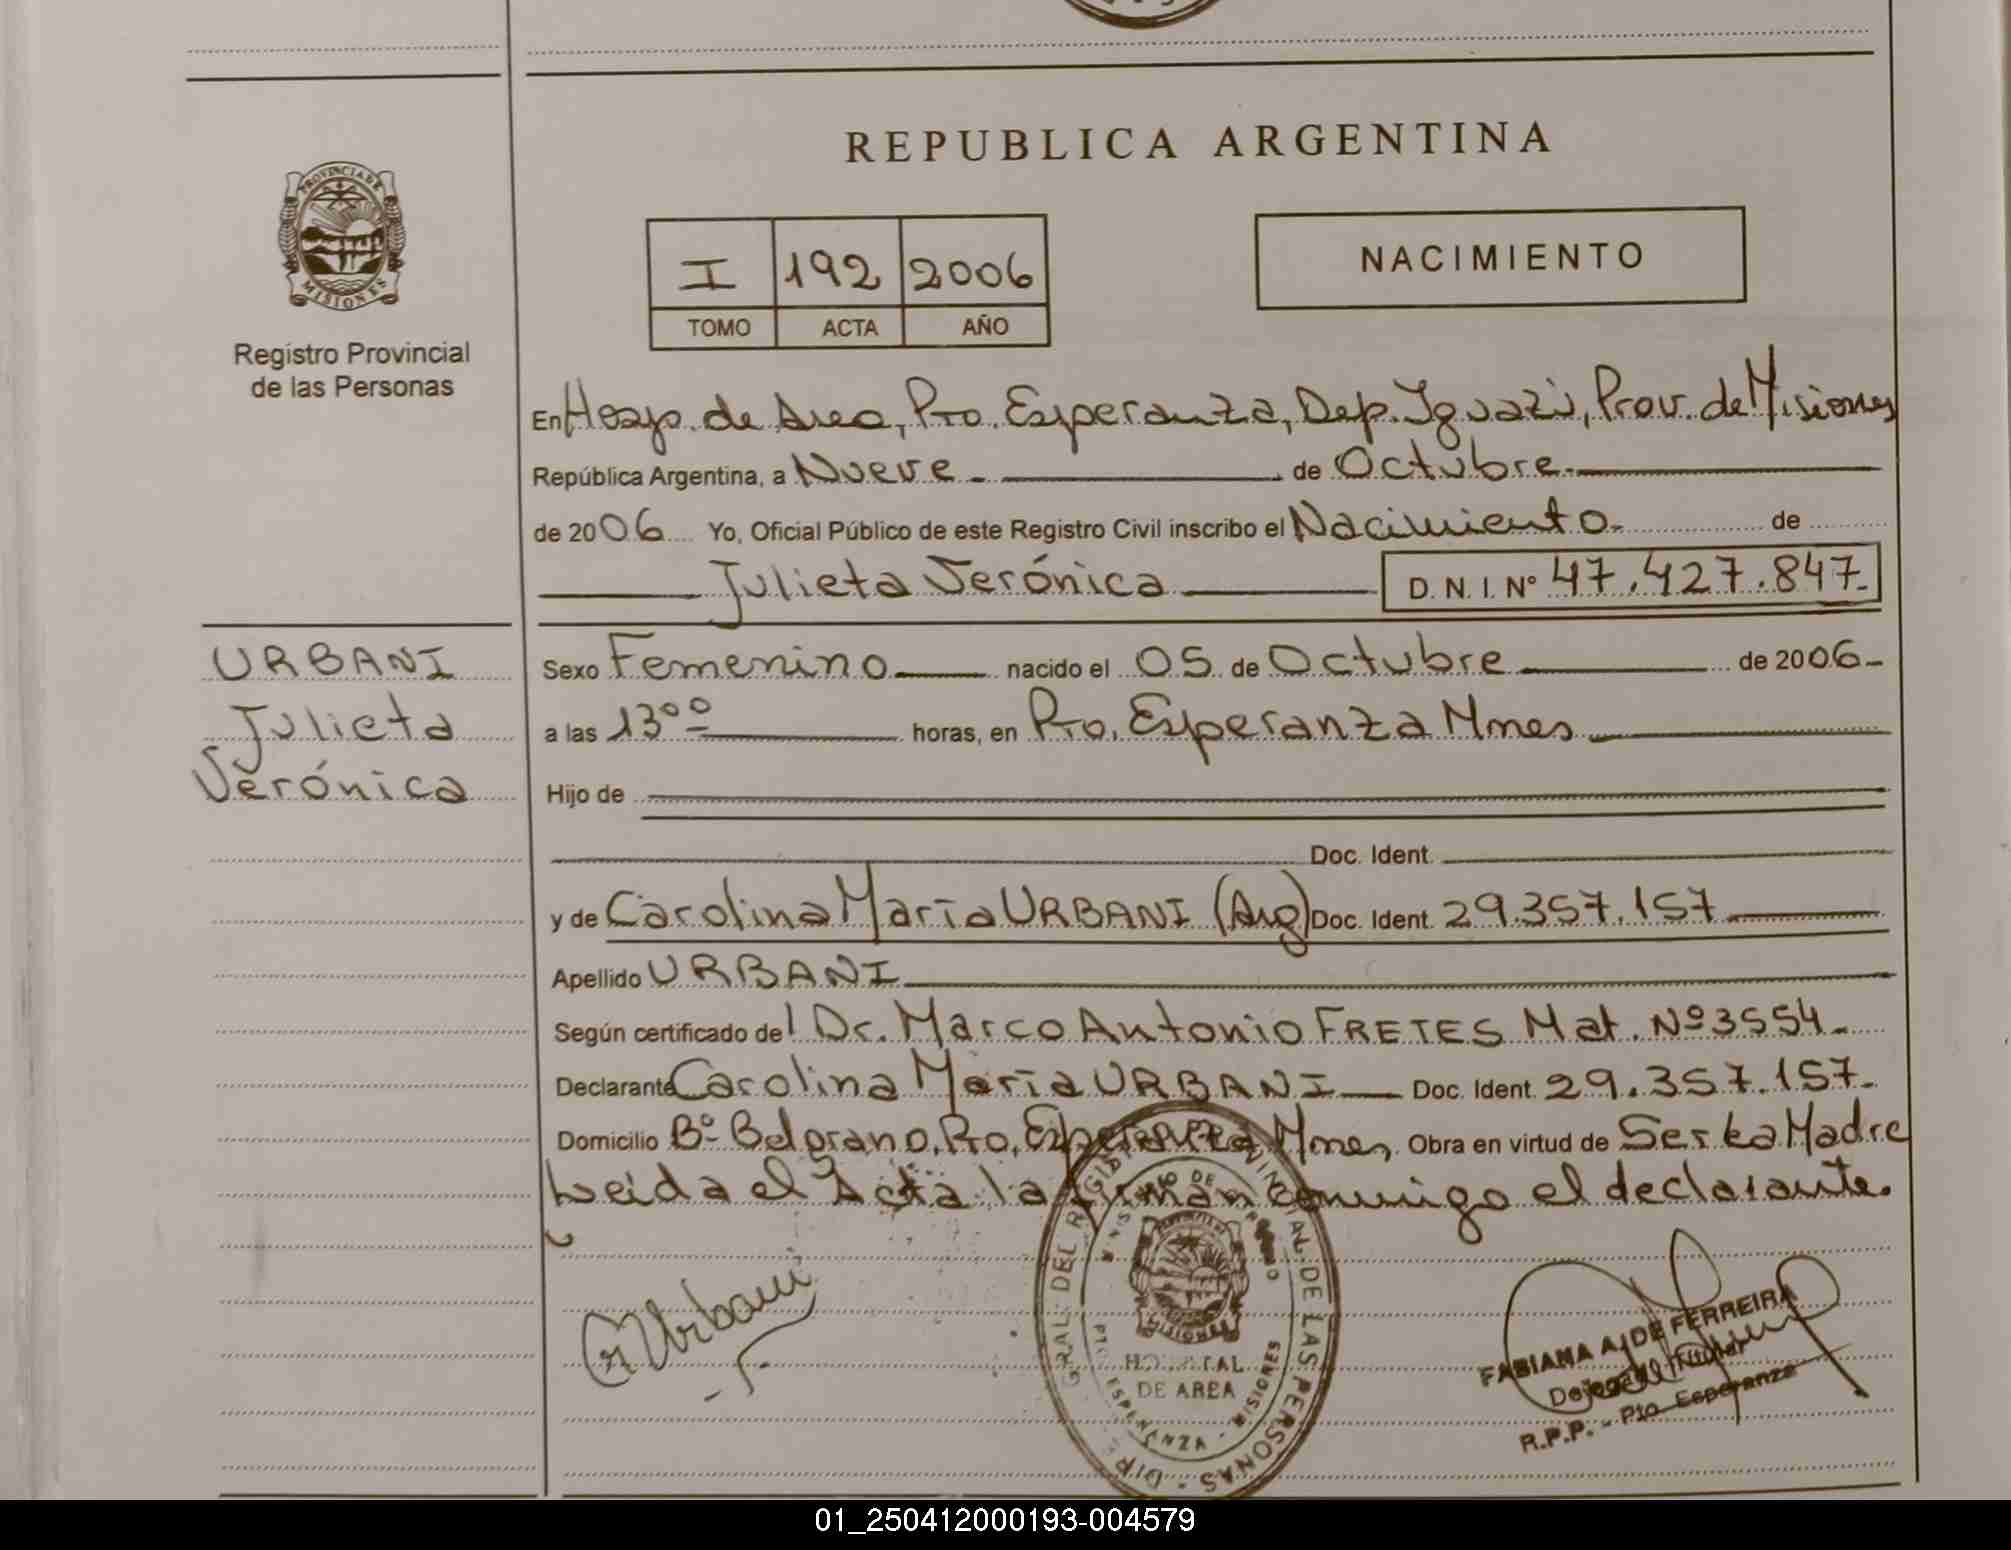 REPUBLICA ARGENTINA
PROVINCIA DE
MISIONES
Registro Provincial
de las Personas
I 192 2006
TOMO ACTA AÑO
NACIMIENTO
En Hosp. de Area, Pto. Esperanza, Dep. Iguazú, Prov. de Misiones
República Argentina, a Nueve de Octubre
de 2006 Yo, Oficial Público de este Registro Civil inscribo el Nacimiento de
Julieta Verónica D. N. I. Nº 47.427.847
URBANI
Julieta
Verónica
Sexo Femenino nacido el 05 de Octubre de 2006
a las 13ºº horas, en Pto. Esperanza Mnes
Hijo de
Doc. Ident.
y de Carolina María URBANI (Arg) Doc. Ident. 29.357.157
Apellido URBANI
Según certificado del Dr. Marco Antonio FRETES Mat. Nº 3554
Declarante Carolina María URBANI Doc. Ident. 29.357.157
Domicilio Bº Belgrano, Pto. Esperanza Mnes, Obra en virtud de Ser La Madre
Leida el Acta la firman conmigo el declarante.
C Urbani
DIR. GRAL. DEL REGISTRO PROVINCIAL DE LAS PERSONAS
MINISTERIO DE GOBIERNO
MISIONES
HOSPITAL
DE AREA
PTO ESPERANZA - MISIONES
FABIANA A. DE FERREIRA
Delegada Titular
R.P.P. - Pto. Esperanza
01_250412000193-004579